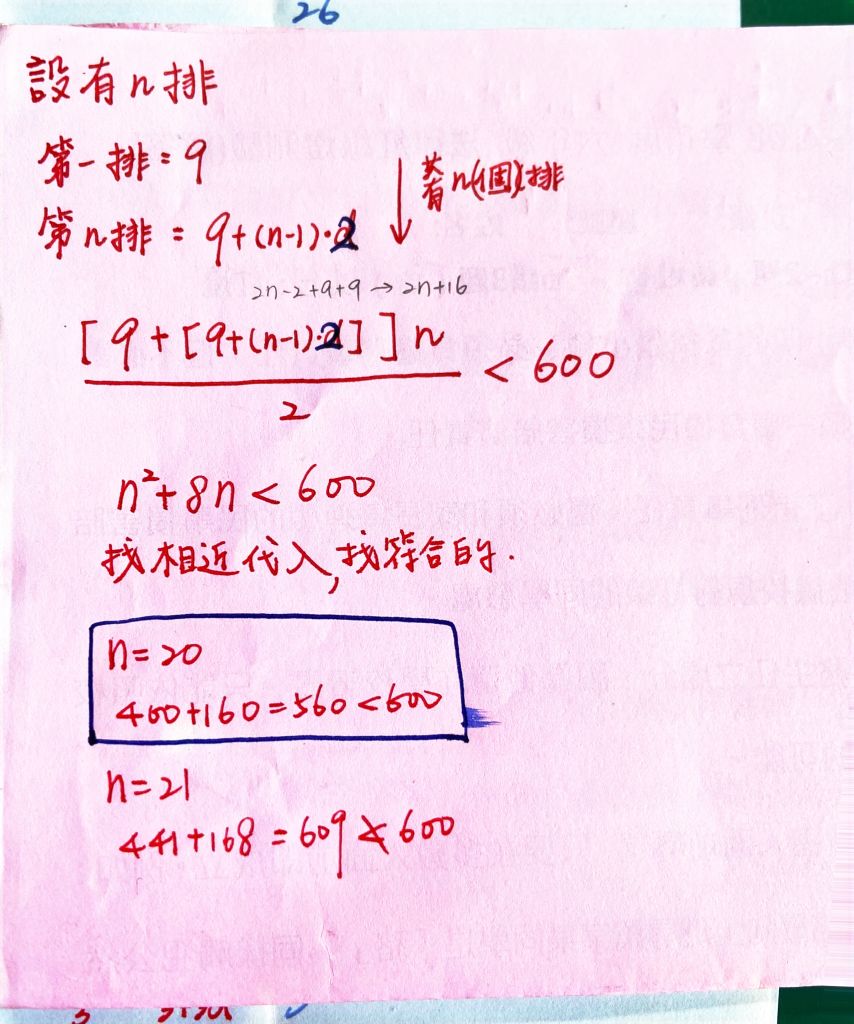 26
設有n排
第一排=9
共有n(個)排
第n排=9+(n-1)·2
2n-2+9+9→2n+16
[9+[9+(n-1)·2]]n
2
<600
n²+8n<600
找相近代入,找符合的.
n=20
400+160=560<600
n=21
441+168=609≮600